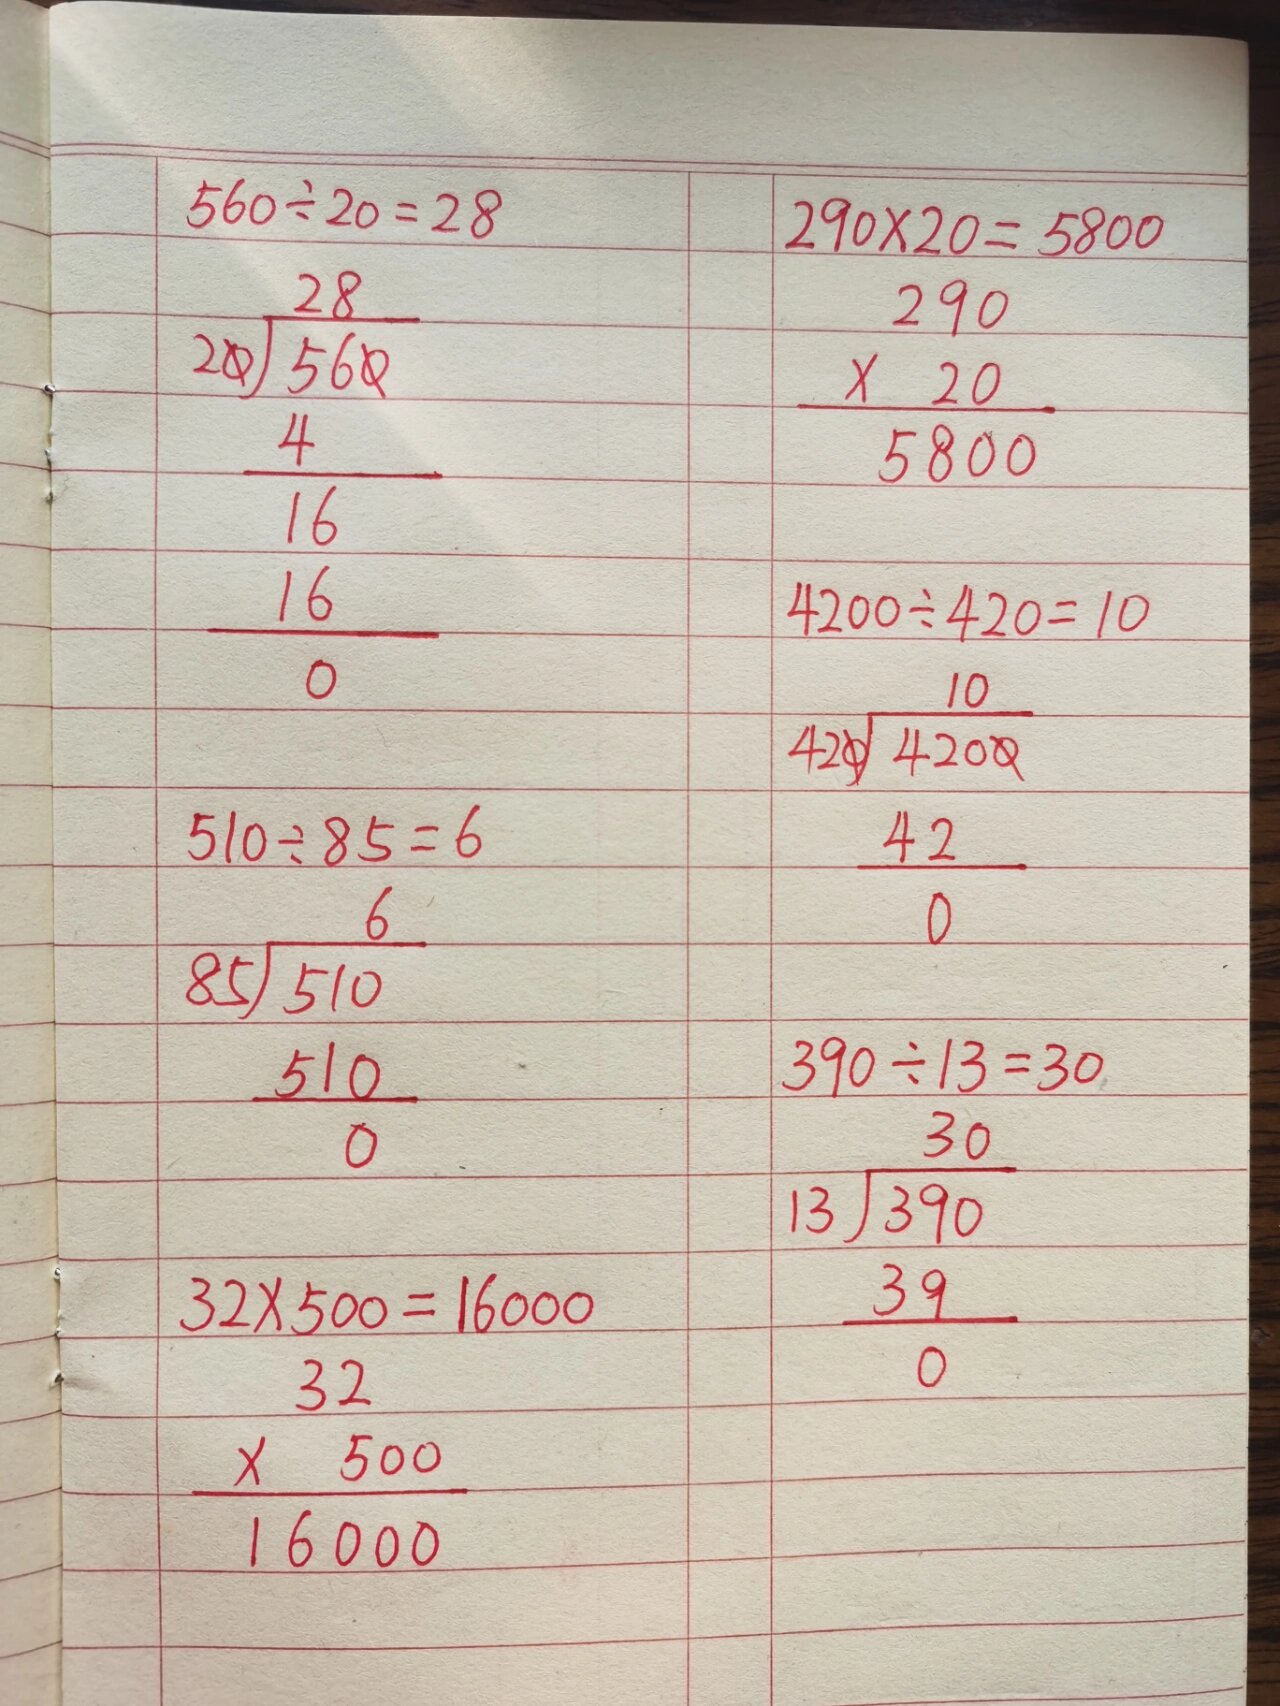 560÷20=28
28
20 560
4
16
16
0
510÷85=6
6
85 510
510
0
32×500=16000
32
× 500
16000
290×20=5800
290
× 20
5800
4200÷420=10
10
420 4200
42
0
390÷13=30
30
13 390
39
0